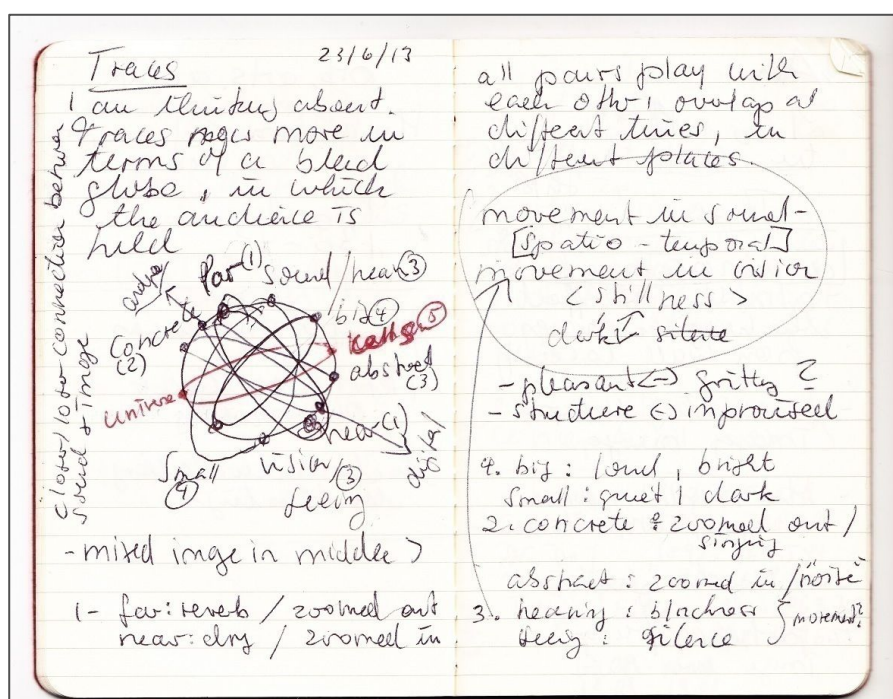 Traces 23/6/13
I am thinking about
traces more in
terms of a
globe, in which
the audience is
held
closer/loser connection between
sound + image
far (1)
sound/hear (3)
big (4)
(5)
abstract
(3)
near (1)
digital
vision/ (3)
seeing
small
(4)
universe
concrete
(2)
- mixed image in middle >
1- far: reverb / zoomed out
near: dry / zoomed in
all pairs play with
each other, overlap at
different times, in
different places.
movement in sound-
[spatio-temporal]
movement in vision
<stillness>
dark silence
- pleasant <-> gritty ?
- structure <-> improvised
4. big: loud, bright
small: quiet | dark
2. concrete: zoomed out /
singing
abstract: zoomed in / "noise"
3. hearing: blackness } movement?
seeing: silence